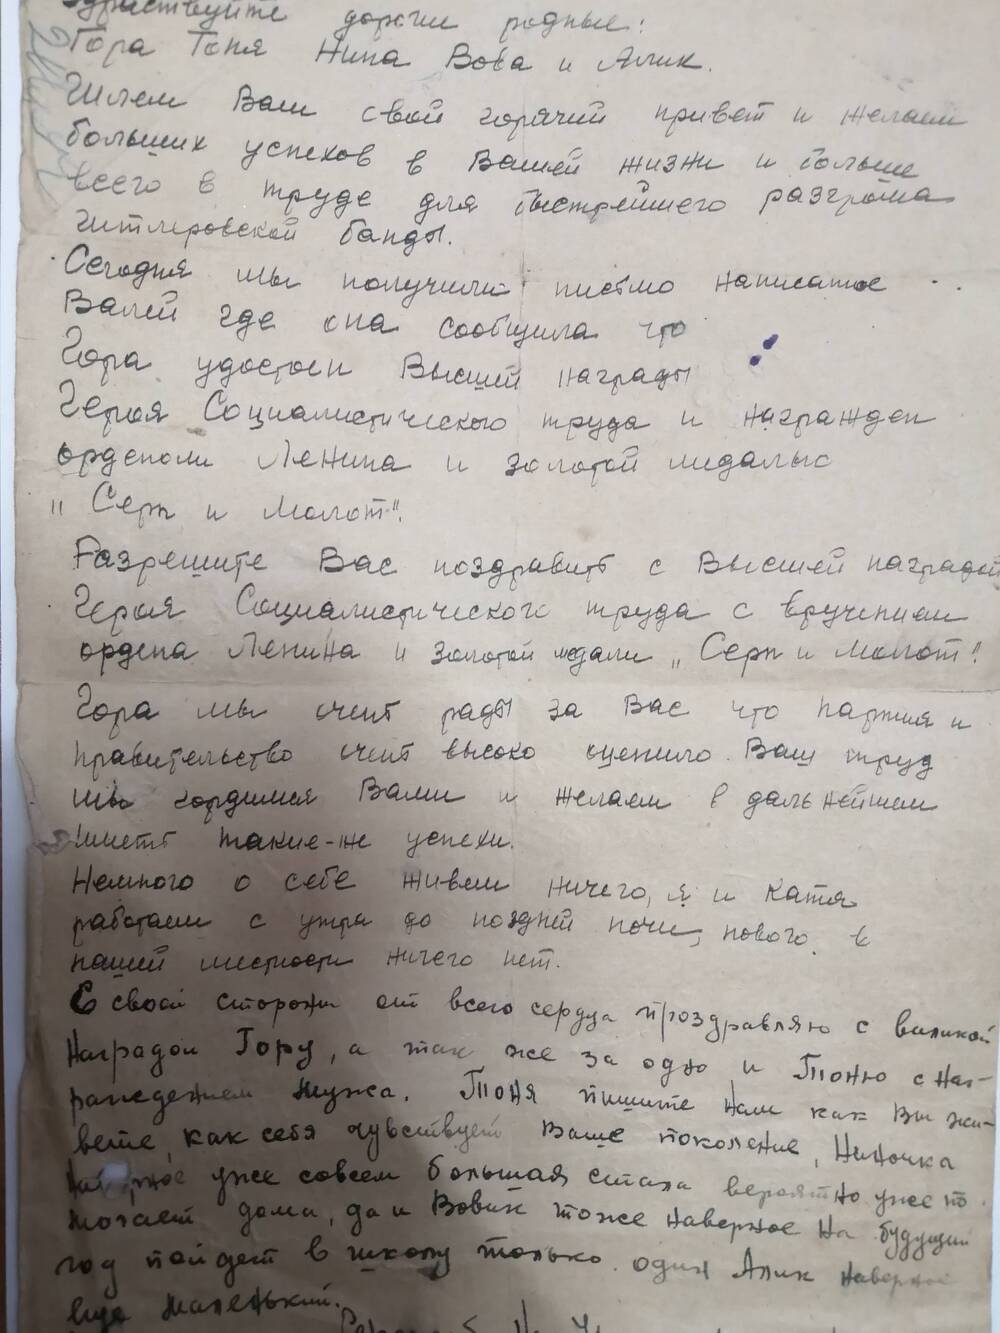 Здравствуйте дорогие родные!
Гора Тоня Нина Вова и Алик.
Шлем Вам свой горячий привет и желаем
больших успехов в Вашей жизни и больше
всего в труде для быстрейшего разгрома
гитлеровской банды.
Сегодня мы получили письмо написаное
Валей где она сообщила что
Гора удостоен Высшей награды
Героя Социалистического труда и награжден
орденом Ленина и золотой медалью
"Серп и Молот".
Разрешите Вас поздравить с Высшей наградой
Героя Социалистического труда с вручением
ордена Ленина и золотой медали "Серп и Молот".
Гора мы очень рады за Вас что партия и
правительство очень высоко оценило Ваш труд
мы гордимся Вами и желаем в дальнейшем
иметь такие-же успехи.
Немного о себе живем ничего, я и Катя
работаем с утра до поздней ночи, нового в
нашей местности ничего нет.
С своей стороны от всего сердца проздравляю с великой
Наградой Гору, а так же за одно и Тоню с наг-
раждением мужа. Тоня пишите нам как Вы жи-
вете, как себя чувствует Ваше поколение, Ниночка
уже совсем большая стала вероятно уже по-
могает дома, да и Вовик тоже наверное на будущий
год пойдет в школу только один Алик наверное
еще маленький.